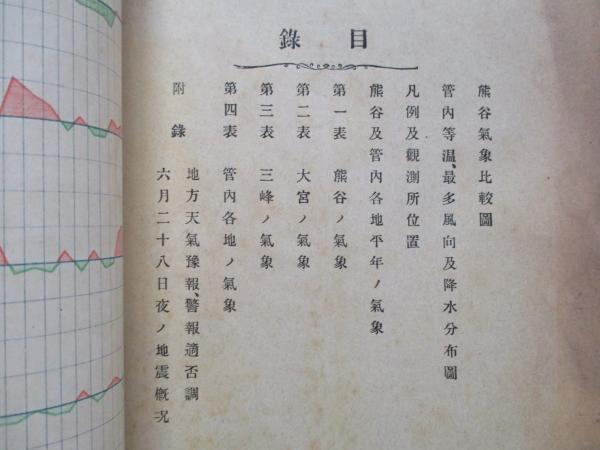 目錄
熊谷氣象比較圖
管內等温、最多風向及降水分布圖
凡例及觀測所位置
熊谷及管內各地平年ノ氣象
第一表 熊谷ノ氣象
第二表 大宮ノ氣象
第三表 三峰ノ氣象
第四表 管內各地ノ氣象
附錄 地方天氣豫報、警報適否調
六月二十八日夜ノ地震概况